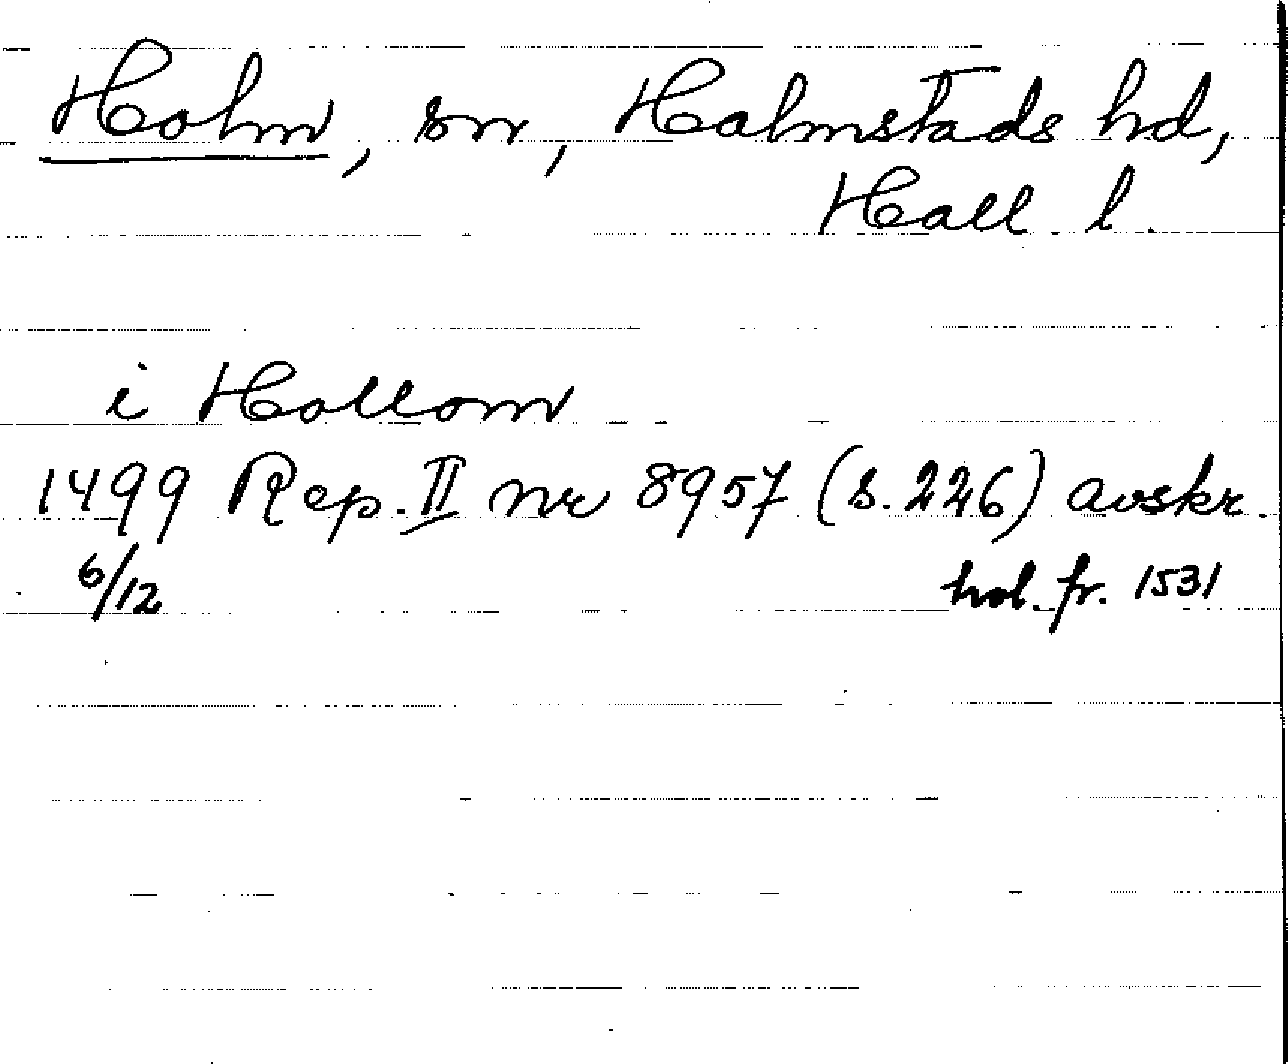 Holm, sn, Halmstads hd,
Hall. l.
i Hollom
1499 Rep. II nr 8957 (s. 226) avskr.
6/12 hol. fr. 1531